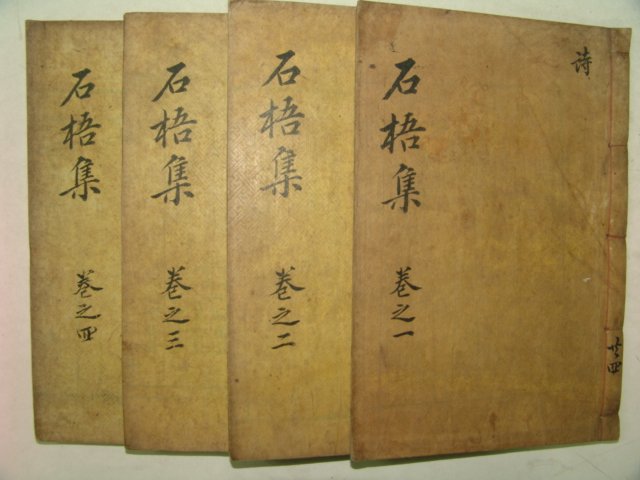 詩
石梧集
卷之一
共四
石梧集
卷之二
石梧集
卷之三
石梧集
卷之四